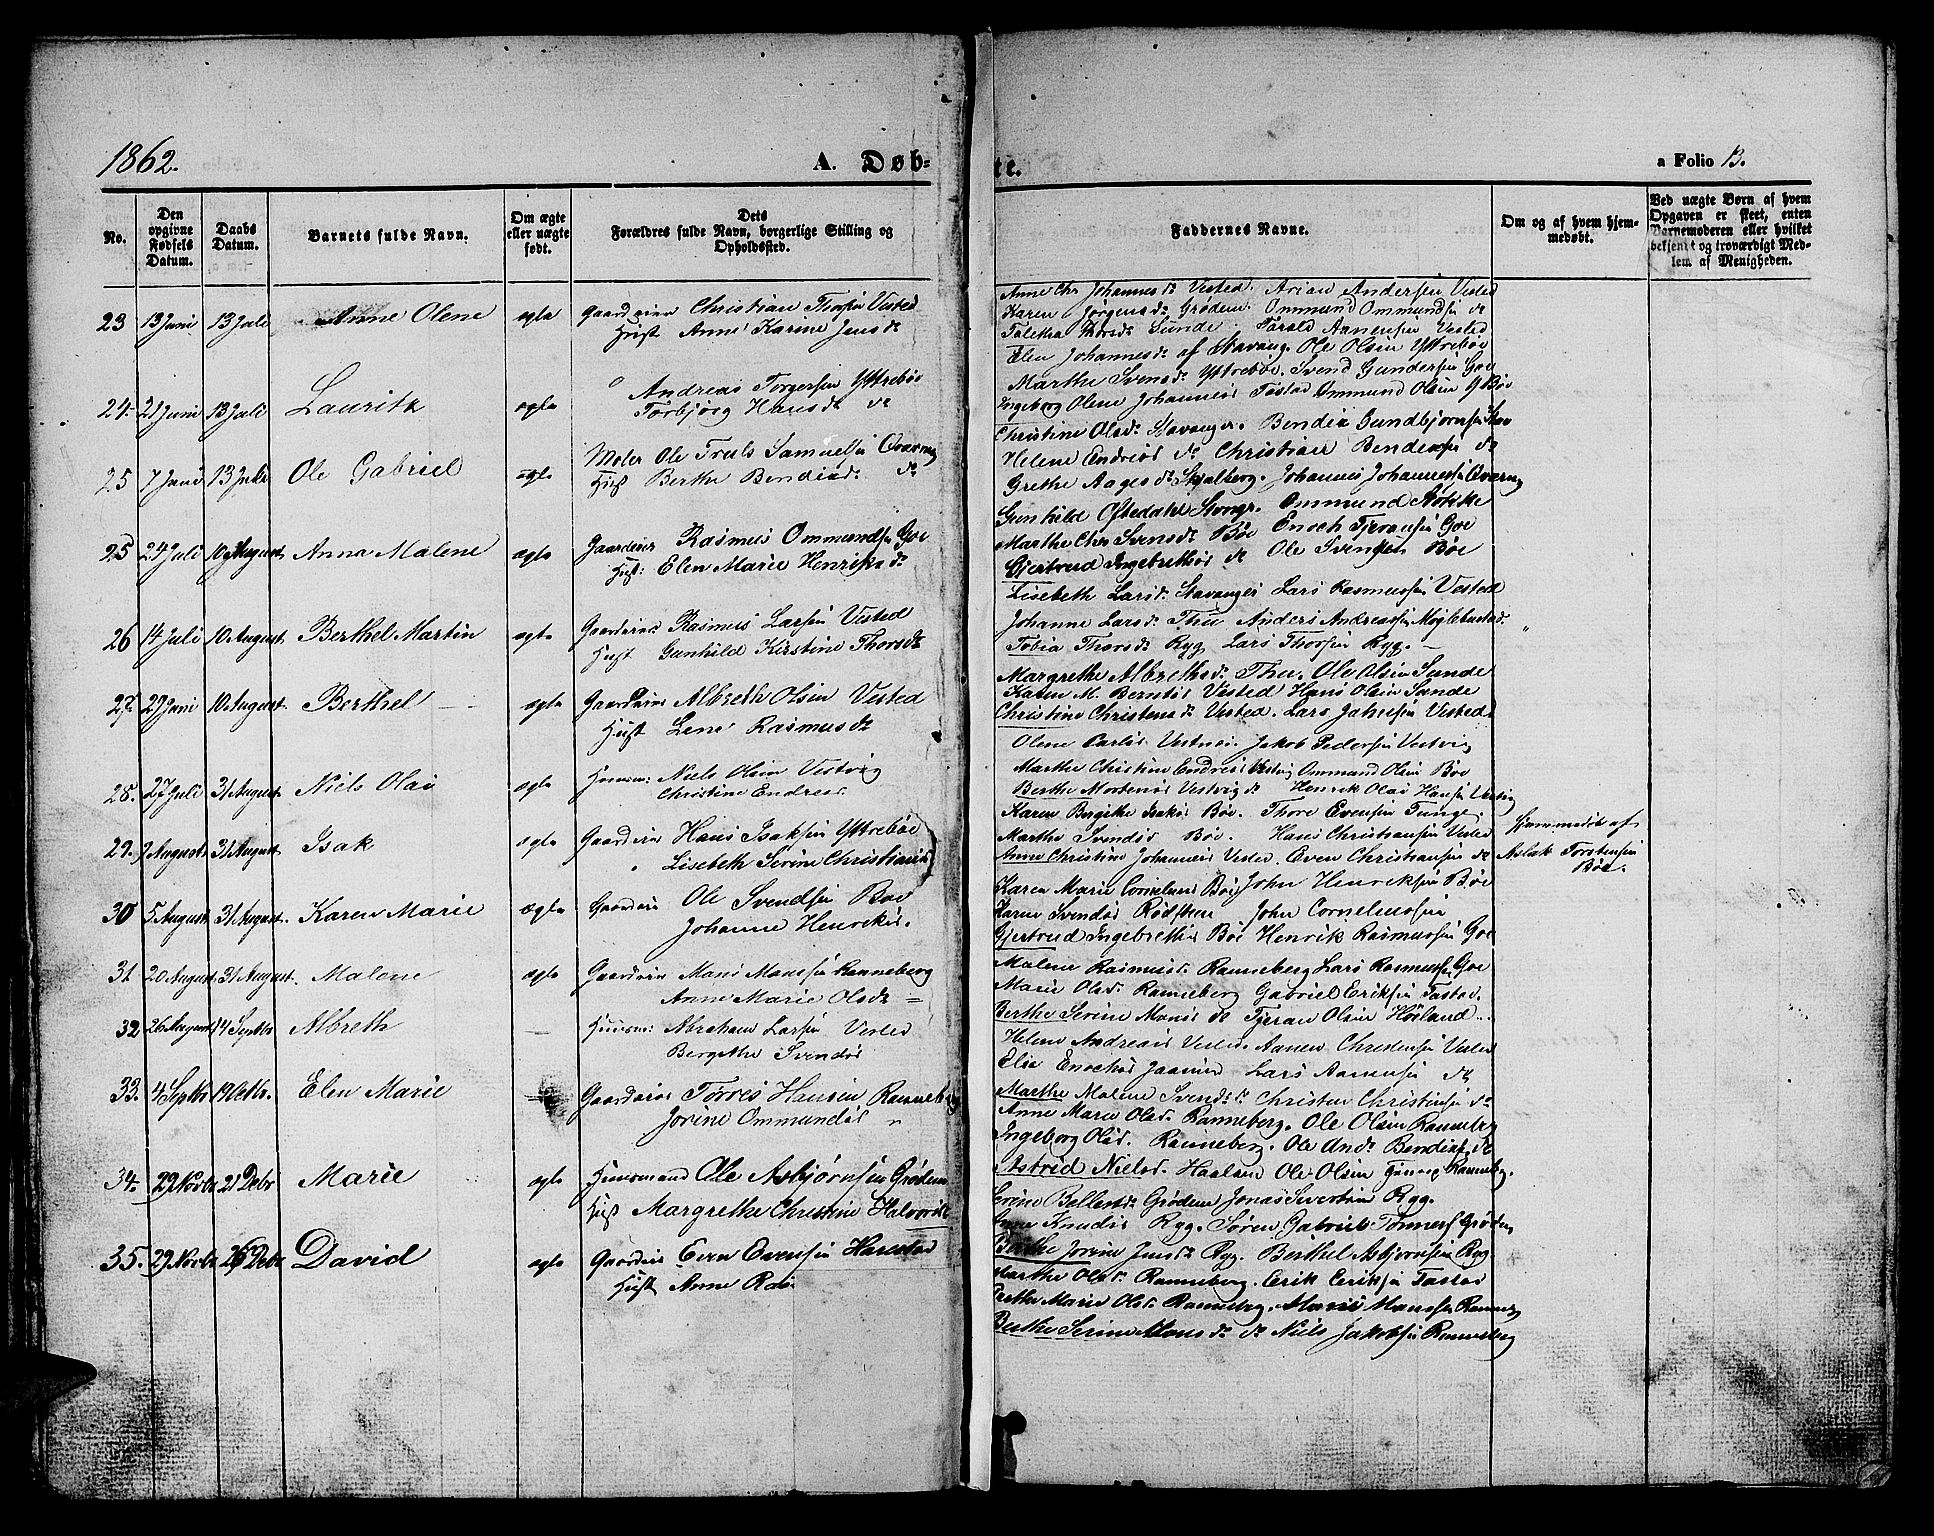 1862.
A. Døb=
te.
a Folio 13.
No.
Den opgivne Fødsels Datum.
Daabs Datum.
Barnets fulde Navn.
Om ægte eller uægte født.
Dets Forældres fulde Navn, borgerlige Stilling og Opholdssted.
Faddernes Navne.
Om og af hvem hjemmedøbt.
Ved uægte Børn af hvem Opgaven er skeet, enten Barnemoderen eller hvilket bekjendt og troværdigt Medlem af Menigheden.
23 13 Juni 13 Juli Anne Olene ægte Gaardeier Christian Thorsen Vested
Hust Anne Karine Jensdr
Anne Chr Johannesdr Vested. Arian Andersen Vested
Karen Jørgensdr Grødem. Ommund Ommundsen dr
Taletha Thorsdr Sunde. Tarald Aanensen Vested
24. 21 Juni 13 Juli Lauritz ægte Andreas Torgersen Yttrebøe
Torbjørg Hansdr dr
Elen Johannesdr af Stavang. Ole Olsen Yttrebøe
Marthe Svensdr Yttrebøe. Svend Gundersen Goe
Ingeborg Olene Johannesd Tastad Ommund Olsen Bøe
25 7 Juni 13 Juli Ole Gabriel ægte Moler Ole Truls Samuelsen Qvarng
Hust Berthe Bendixd. dr
Christine Olsdr Stavanger. Bendix Gundbjørnsen Stav
Helene Endresd dr Christian Bendixsen dr
Grethe Aagesdr Skjalberg. Johannes Johannessen Qværng
25 24 Juli 10 August Anna Malene ægte Gaardeier Rasmus Ommundsen Goe
Hust: Elen Marie Henriksdr
Gunhild Oftedahl Stvngr. Ommund Stokke
Marthe Chr Svensdr Bøe Enoch Tjeransen Goe
Gjertrud Ingebrethsd dr Ole Svensen Bøe
26 14 Juli 10 August. Berthel Martin ægte Gaardeier Rasmus Larsen Vested
Hust Gunhild Kirstine Thorsdr
Lisebeth Larsd. Stavanger Lars Rasmussen Vested
Johanne Larsdr Thu Anders Andreassen Møglebustad
Tobia Thorsdr Ryg Lars Thorsen Ryg.
27. 29 Juni 10 August. Berthel ægte Gaardeier Albreth Olsen Vested
Hust Lene Rasmusdr
Margrethe Albrethsdr Thu. Ole Olsen Sunde
Karen M. Berntsd Vested Hans Olsen Sunde
Christine Christensdr Vested. Lars Jahnsen Vested.
28. 27 Juli 31 August. Niels Olai ægte Huusm: Niels Olsen Vestvig
Christine Endresd
Olene Carlsd Vestnes. Jakob Pedersen Vestvig
Marthe Christine Endresd Vestvig Ommund Olsen Bøe
Berthe Mortensd Vestvig dr Henrik Olai Hansen Vestvig
29. August 31 August Isak ægte Gaardeier Hans Isaksen Yttrebøe
Lisebeth Serine Christiansd
Karen Bergithe Isaksd Bøe. Thore Evensen Tunge.
Marthe Svendsd Bøe. Hans Christiansen Vested
Anne Christine Johannesd Vested. Even Christiansen dr
Hjemmedøbt af
Aslak Torstensen
Bøe.
30 5 August 31 August. Karen Marie ægte Gaardeier Ole Svendsen Bøe
Johanne Henriksd.
Karen Marie Cornelius Bøe John Henriksen Bøe
Karen Svendsd Rødsheen John Corneliussen
Gjertrud Ingebrethsd Bøe Henrik Rasmussen Goe
31 20 August 31 August. Malene ægte Gaardeier Mons Monssen Ranneberg
Anne Marie Olsdr =
Malene Rasmusd. Ranneberg Lars Rasmussen Goe
Marie Olsd. Ranneberg Gabriel Eriksen Tastad.
Berthe Serine Monsd dr Tjeran Olsen Høiland
32 26 August 14 Septbr Albreth Huusm: Abraham Larsen Vested
Bergethe Svendsd
Helene Andreasd Vested. Aanen Christensen Vested
Else Enochsd Jaasund Lars Aanensen dr
Marthe Malene Svendsdr Christen Christensen dr
33. 4 Septbr 19 Octbr. Elen Marie Gaardeier Torres Hansen Ranneberg
Jorine Ommundsd "
Anne Marie Olsd Ranneberg. Ole Olsen Ranneberg
Ingeborg Olsd. Ranneberg. Ole Andr Bendixsen dr
Astrid Nielsd. Haaland Ole Olsen Ranneberg.
34. 29 Novbr 21 Debr Marie ægte Huusmand Ole Asbjørnsen Grødem
Hust Margrethe Christine Halvorsdr
Serine Bellestdr Grødem Jonas Sivertsen Ryg.
Knudsd Ryg. Søren Gabriel Tønnes Grødem
Berthe Jorine Jensdr Ryg. Berthel Asbjørnsen Ryg
35. 29 Novbr 26 Debr David ægte Gaardeier Even Evensen Harestad
Hust Anne Ras
Marthe Olsd. Ranneberg. Eerik Eeriksen Tastad
Berthe Marie Olsd. Ranneberg. Mons Monssen Ranneberg
Berthe Serine Monsdr dr Niels Jakobsen Ranneberg